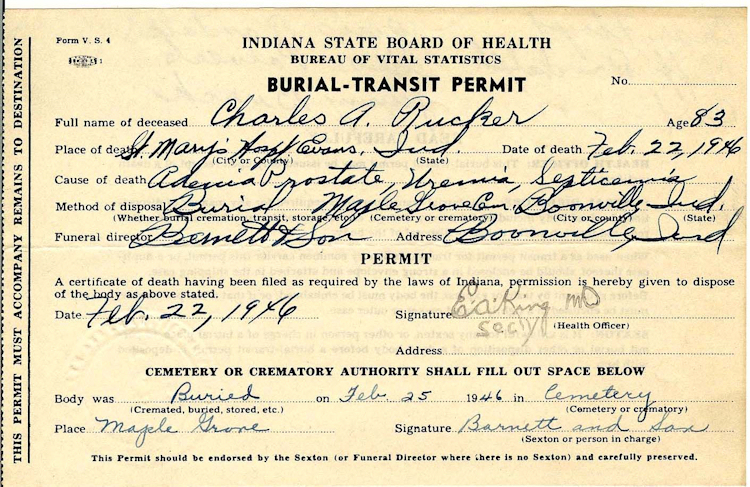 Form V. S. 4
INDIANA STATE BOARD OF HEALTH
BUREAU OF VITAL STATISTICS
BURIAL-TRANSIT PERMIT
No.
Full name of deceased Charles A. Rucker Age 83
Place of death St. Mary's Hsp Evans, Ind Date of death Feb. 22, 1946
(City or County) (State)
Cause of death Prostate, Uremia, Septicemia
Method of disposal Burial Maple Grove Cem. Boonville, Ind.
(Whether burial cremation, transit, storage, etc.) (Cemetery or crematory) (City or county) (State)
Funeral director Barnett & Son Address Boonville, Ind
PERMIT
A certificate of death having been filed as required by the laws of Indiana, permission is hereby given to dispose
of the body as above stated.
Date Feb. 22, 1946 Signature E. A. King MD
Secty (Health Officer)
Address
CEMETERY OR CREMATORY AUTHORITY SHALL FILL OUT SPACE BELOW
Body was Buried on Feb 25 1946 in Cemetery
(Cremated, buried, stored, etc.) (Cemetery or crematory)
Place Maple Grove Signature Barnett and Son
(Sexton or person in charge)
This Permit should be endorsed by the Sexton (or Funeral Director where there is no Sexton) and carefully preserved.
THIS PERMIT MUST ACCOMPANY REMAINS TO DESTINATION